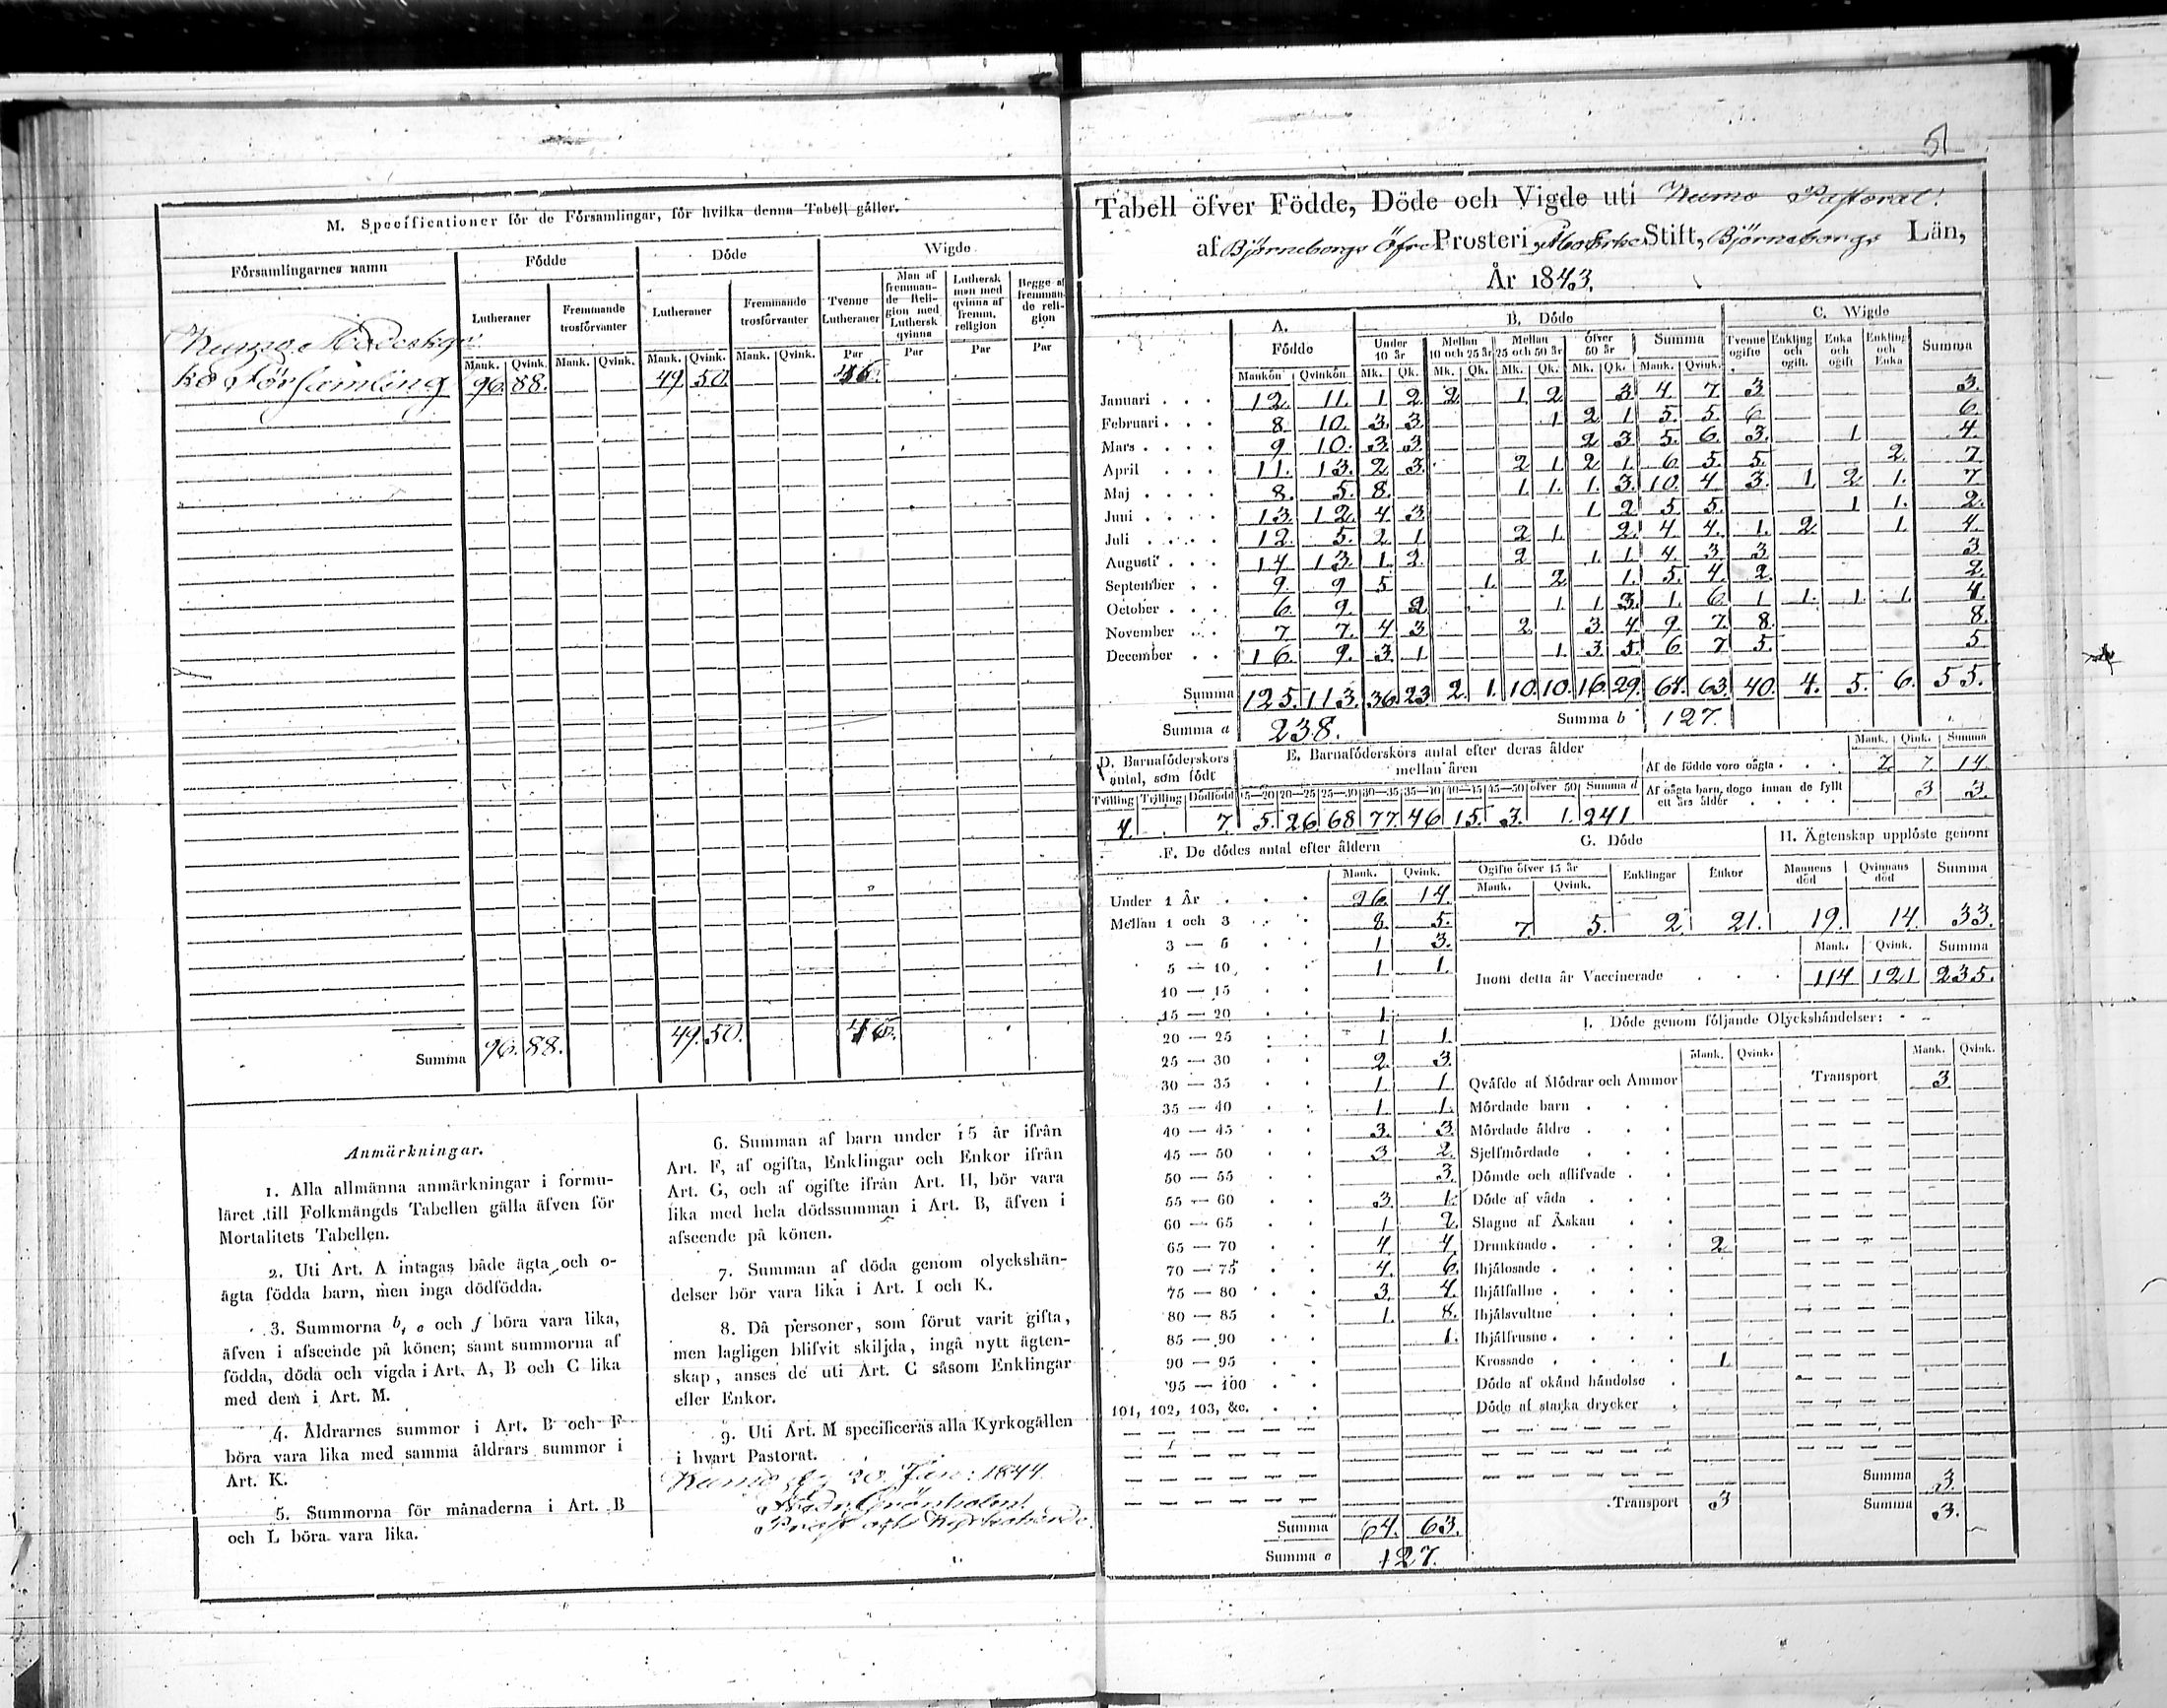 M. Specificationer för de Församlingar, för hvilka denna Tabell gäller.
Församlingarnes namn Födde Döde Wigde
Lutheraner Fremmande trosförvanter Lutheraner Fremmande trosförvanter Tvenne Lutheraner Man af fremmande Religion med Luthersk qvinna Luthersk man med qvinna af fremm. religion Begge af fremmande religion
Mank. Qvink. Mank. Qvink. Mank. Qvink. Mank. Qvink. Par Par Par Par
Kumo Moderkyr
ko Församling 96. 88. 49. 50. 46.
Summa 96. 88. 49. 50. 46.
Anmärkningar.
1. Alla allmänna anmärkningar i formu-
läret till Folkmängds Tabellen gälla äfven för
Mortalitets Tabellen.
2. Uti Art. A intagas både ägta och o-
ägta födda barn, men inga dödfödda.
3. Summorna b, c och f böra vara lika,
äfven i afseende på könen; samt summorna af
födda, döda och vigda i Art. A, B och C lika
med dem i Art. M.
4. Åldrarnes summor i Art. B och F
böra vara lika med samma åldrars summor i
Art. K.
5. Summorna för månaderna i Art. B
och L böra vara lika.
6. Summan af barn under 15 år ifrån
Art. F, af ogifta, Enklingar och Enkor ifrån
Art. G, och af ogifte ifrån Art. H, bör vara
lika med hela dödssumman i Art. B, äfven i
afseende på könen.
7. Summan af döda genom olyckshän-
delser bör vara lika i Art. I och K.
8. Då personer, som förut varit gifta,
men lagligen blifvit skiljda, ingå nytt ägten-
skap, anses de uti Art. C såsom Enklingar
eller Enkor.
9. Uti Art. M specificeras alla Kyrkogällen
i hvart Pastorat.
Kumo 20 Jan: 1844.
Grönholm
Prost och Kyrkoherde.
51
Tabell öfver Födde, Döde och Vigde uti Kumo Pastorat
af Björneborgs Öfre Prosteri, Åbo Erke Stift, Björneborgs Län,
År 1843.
A. Födde B. Döde C. Wigde
Under 10 år Mellan 10 och 25 år Mellan 25 och 50 år Öfver 50 år Summa Tvenne ogifte Enkling och ogift. Enka och ogift Enkling och Enka Summa
Mankön Qvinkön Mk. Qk. Mk. Qk. Mk. Qk. Mk. Qk. Mank. Qvink.
Januari 12. 11. 1 2 2 1 2 3 4. 7. 3 3.
Februari 8. 10. 3 3 1 2 1 5. 5. 6 6.
Mars 9 10. 3 3 2 3 5. 6. 3. 1 4.
April 11. 13. 2 3 2 1 2 1. 6. 5. 5. 2. 7
Maj 8. 5. 8. 1. 1. 1. 3. 10. 4 3. 1. 2 1. 7
Juni 13. 12. 4 3 1. 2 5 5. 1 1. 2.
Juli 12. 5. 2 1 2 1. 2. 4 4. 1. 2. 1. 4.
Augusti 14 13. 1. 2. 2 1 1. 4. 3 3 3
September 9. 9 5 1. 2 1. 5. 4. 2. 2.
October 6. 9. 2 1. 1 3. 1. 6. 1 1. 1. 1. 4.
November 7 7. 4 3 2. 3 4. 9. 7. 8. 8.
December 16. 9. 3. 1 1. 3 5. 6 7 5. 5
Summa 125. 113. 36. 23 2. 1. 10. 10. 16. 29. 64. 63. 40. 4. 5. 6. 55.
Summa a 238. Summa b 127.
D. Barnaföderskors antal, som födt
Tvilling Trilling Dödfödd
4. 7.
E. Barnaföderskors antal efter deras ålder mellan åren
15—20 20—25 25—30 30—35 35—40 40—45 45—50 öfver 50 Summa d
5. 26 68 77. 46 15. 3. 1. 241
Mank. Qvink. Summa
Af de födde voro oägta 7 7 14.
Af oägta barn, dogo innan de fyllt ett års ålder 3 3.
F. De dödes antal efter åldern
Mank. Qvink.
Under 1 År 26. 14.
Mellan 1 och 3 8. 5.
3 — 5 1 3.
5 — 10 1 1.
10 — 15
15 — 20 1.
20 — 25 1 1.
25 — 30 2. 3.
30 — 35 1. 1.
35 — 40 1. 1.
40 — 45 3. 3.
45 — 50 3 2.
50 — 55 3.
55 — 60 3. 1.
60 — 65 1 2.
65 — 70 4 4.
70 — 75 4. 6.
75 — 80 3. 4.
80 — 85 1. 8.
85 — 90 1.
90 — 95
95 — 100
101, 102, 103, &c.
Summa 64. 63.
Summa c 127.
G. Döde
Ogifte öfver 15 år Enklingar Enkor
Mank. Qvink.
7. 5. 2. 21.
H. Ägtenskap upplöste genom
Mannens död Qvinnans död Summa
19. 14. 33.
Mank. Qvink. Summa
Inom detta år Vaccinerade 114 121 235.
I. Döde genom följande Olyckshändelser:
Mank. Qvink. Mank. Qvink.
Qväfde af Mödrar och Ammor Transport 3
Mördade barn
Mördade äldre
Sjelfmördade
Dömde och aflifvade
Döde af våda
Slagne af Åskan
Drunknade 2
Ihjälosade
Ihjälfallne
Ihjälsvultne
Ihjälfrusne
Krossade 1
Döde af okänd händelse
Döde af starka drycker
Summa 3.
Transport 3 Summa 3.